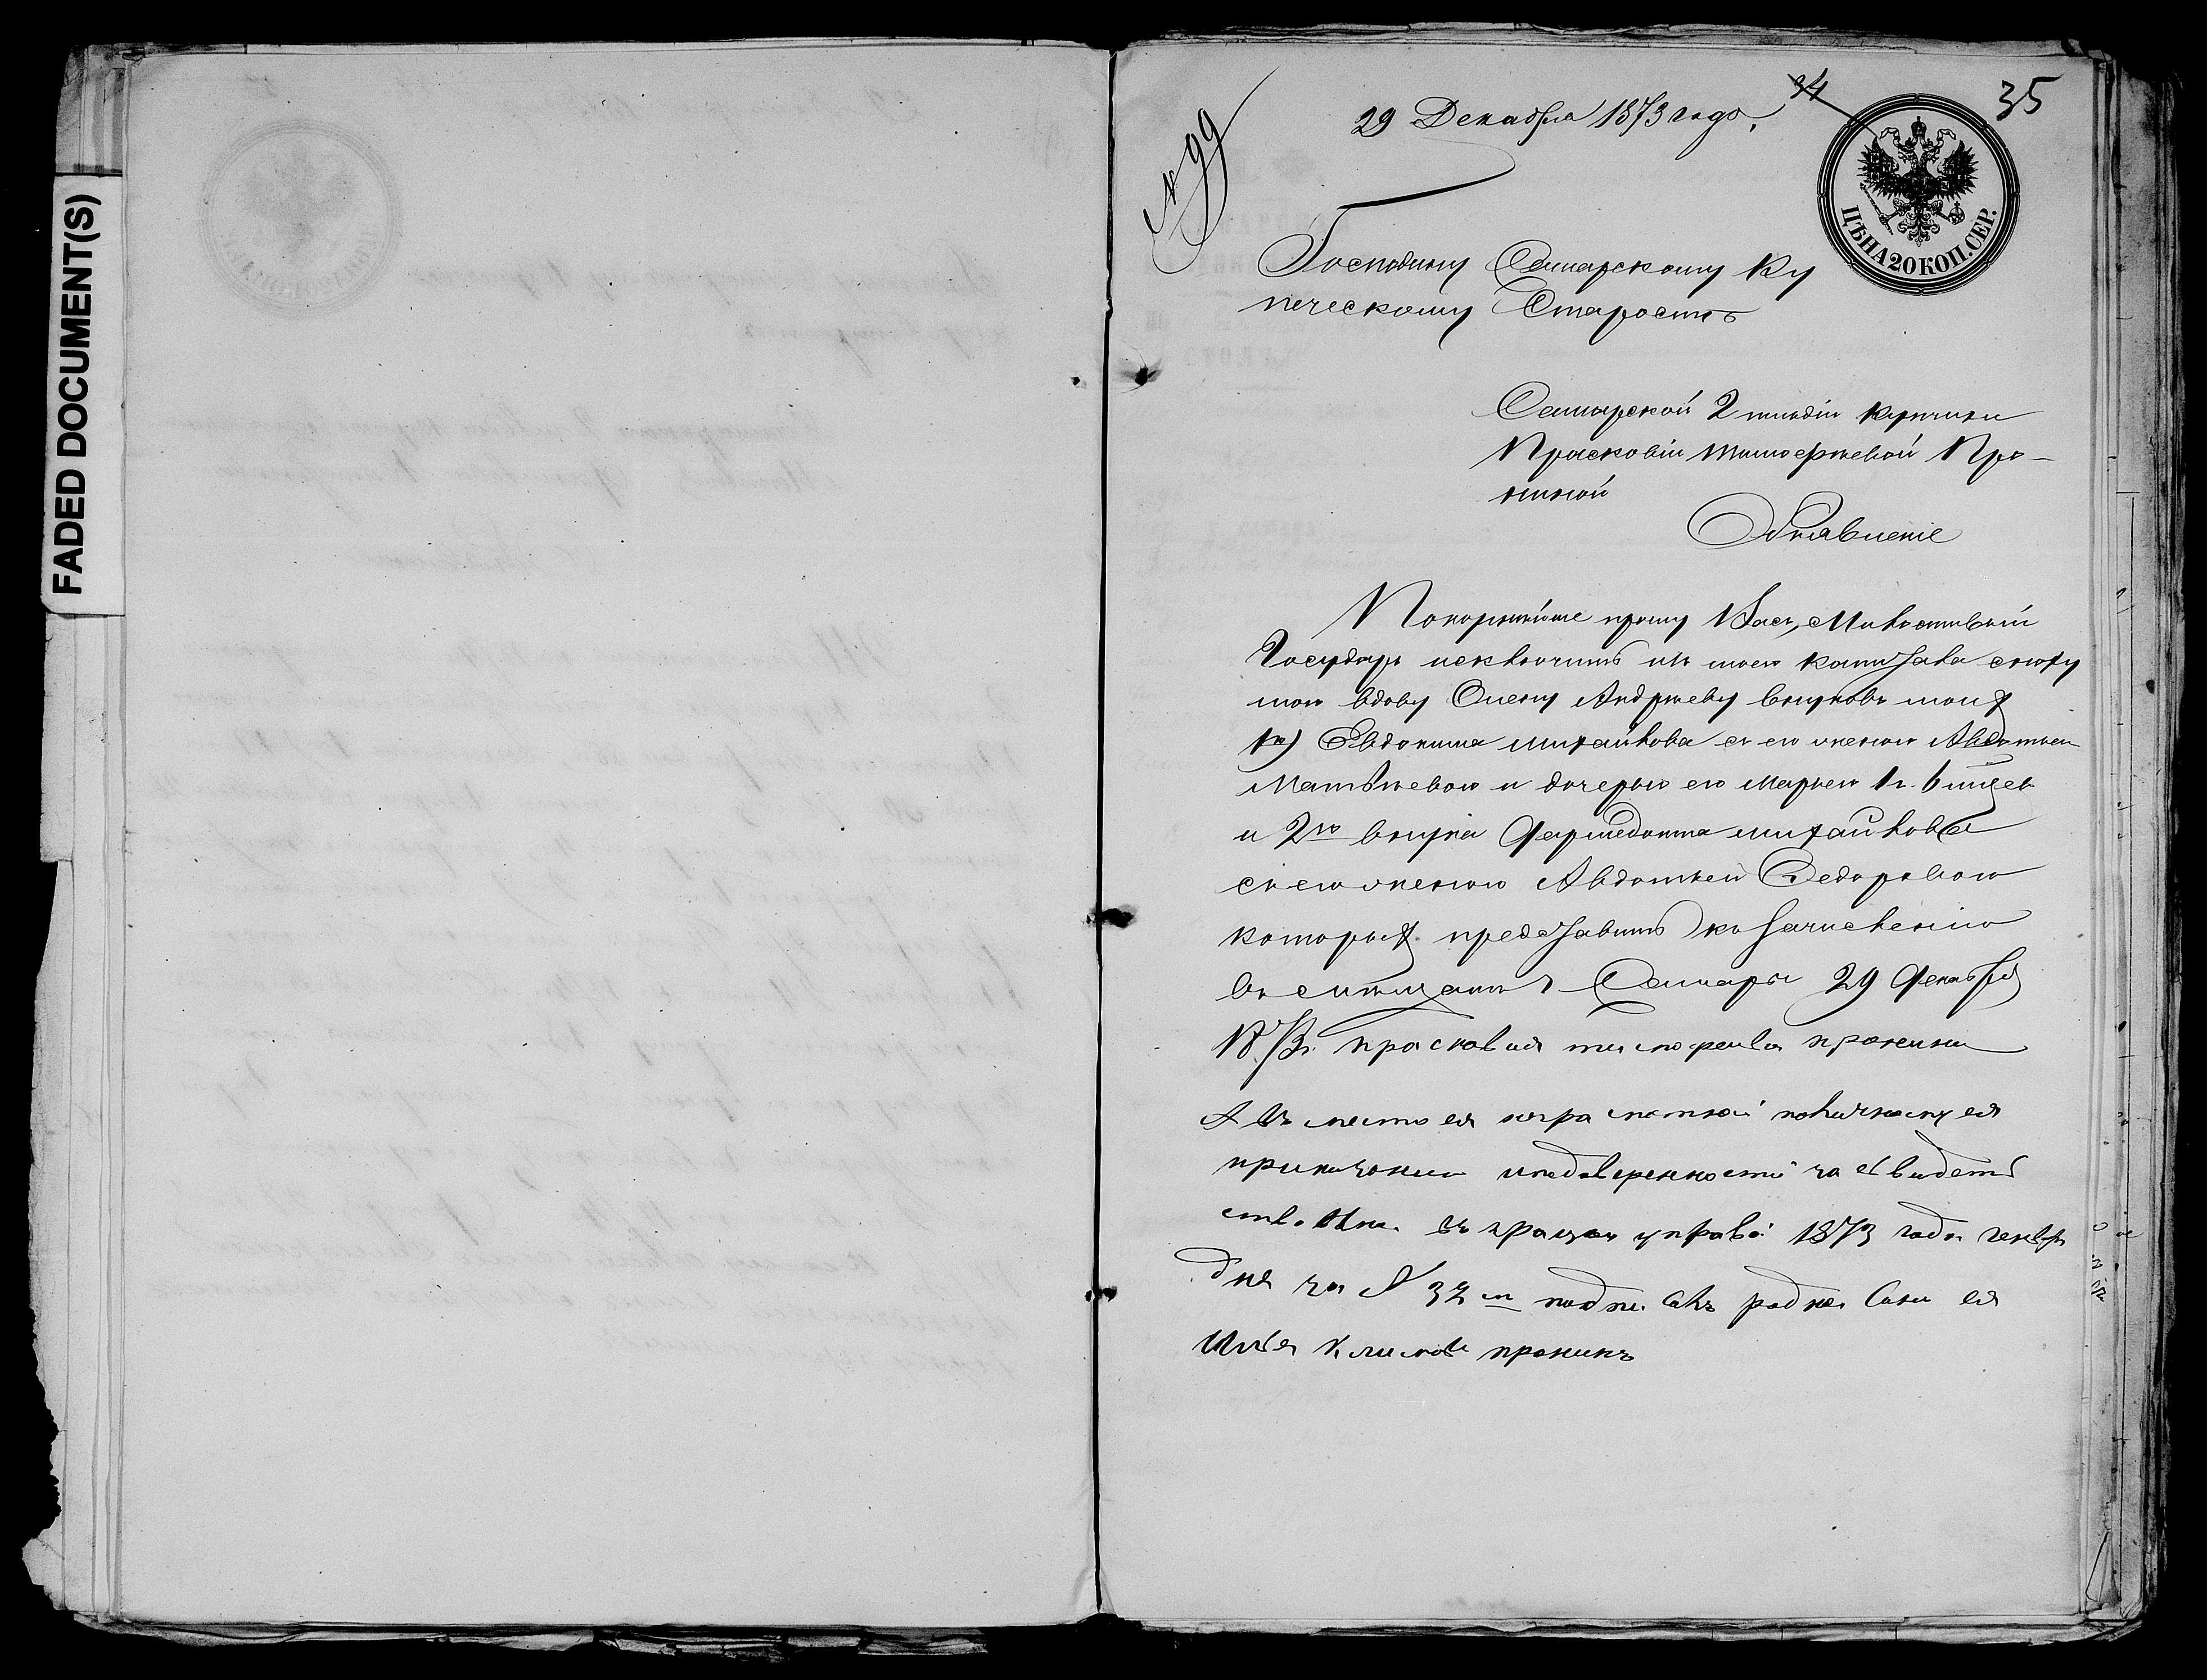 FADED DOCUMENT(S)
№ 99
29 Декабря 1873 года.
34
35
ЦѢНА 20 КОП. СЕР.
Господину Самарскому Ку
печескому Старостѣ
Самарской 2 гильдіи купчихи
Прасковіи Тимофѣевой Про-
ниной
Объявленіе
Покорнѣйше прошу Васъ, Милостивый
Государь исключить изъ моего капитала сноху
мою вдову Елену Андрѣеву внуковъ моихъ
1го) Евдокима Михайлова съ его женою Авдотьею
Матвѣевою и дочерью его Марьею 1 г. 6 мицев
и 2го внука Михайлова
съ его женою Авдотьей Федоровою
которыхъ представить къ зачисленію
въ мѣщане Самара 29 Декабря
1873 г. Прасковия тимофеева пронина
А въместо ея неграмотной поличному ея
приказанию доверенности засвидетѣ
ство 1873 года декабр
дня за № 32 подписалъ родной сынъ ея
Илья Климовъ пронинъ